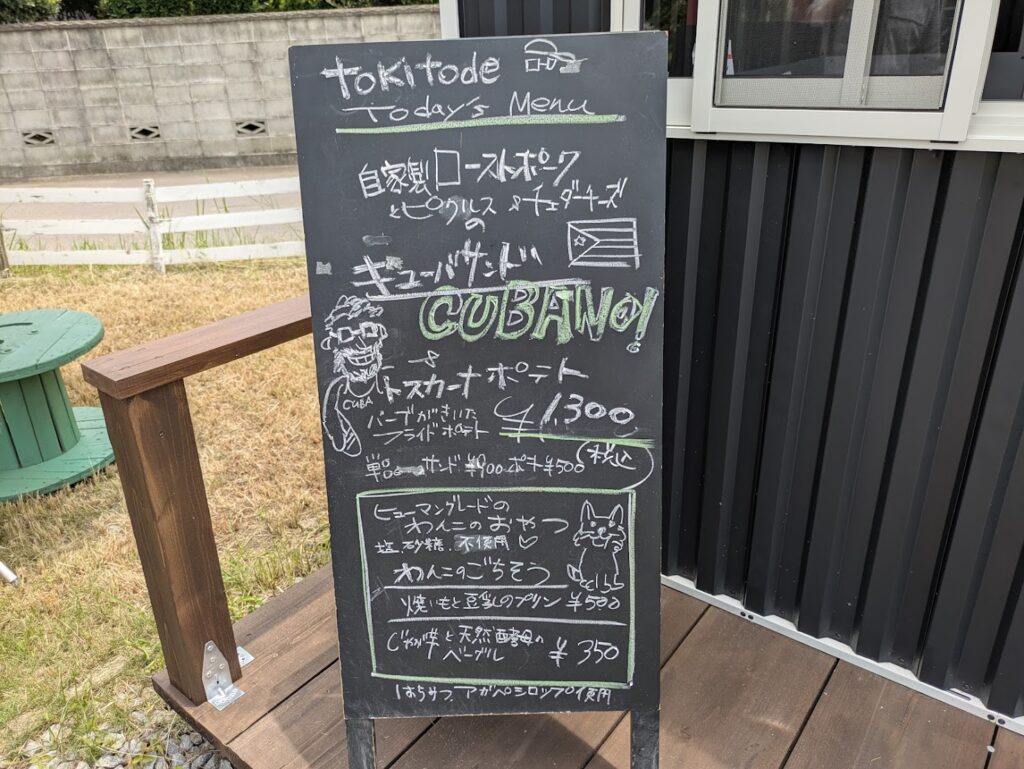 tokitode
Today's Menu
自家製ローストポーク
とピクルス &チェダーチーズ
の
キューバサンド
CUBANO!
CUBA
&
トスカーナポテト
ハーブがきいた
フライドポテト
¥1,300
税込
単品 サンド¥900 ポテト¥500
ヒューマングレードの
わんこのおやつ
塩、砂糖、不使用♡
わんこのごちそう
焼いもと豆乳のプリン ¥500
じゃが芋と天然酵母の
ベーグル ¥350
アガペシロップ使用